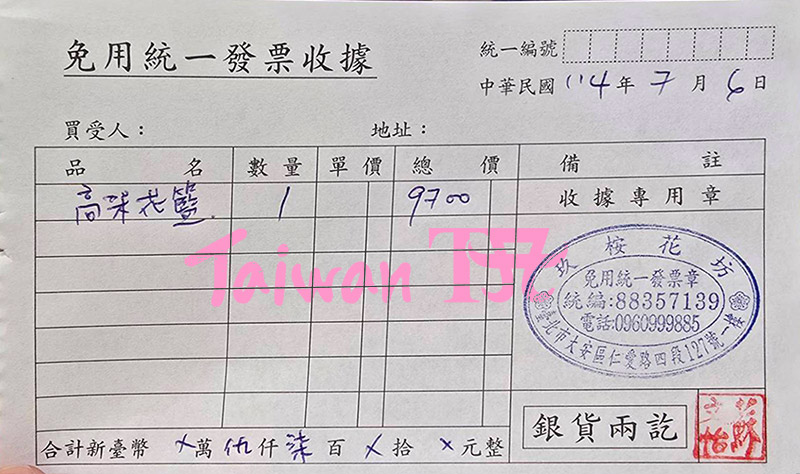 免用統一發票收據
統一編號
中華民國 114 年 7 月 6 日
買受人： 地址：
品名 數量 單價 總價 備註
高架花籃 1 9700 收據專用章
玖桉花坊
免用統一發票章
統編:88357139
電話:0960999885
臺北市大安區仁愛路四段127號一樓
Taiwan TSZ
銀貨兩訖
合計新臺幣 ×萬 仇仟 柒百 ×拾 ×元整